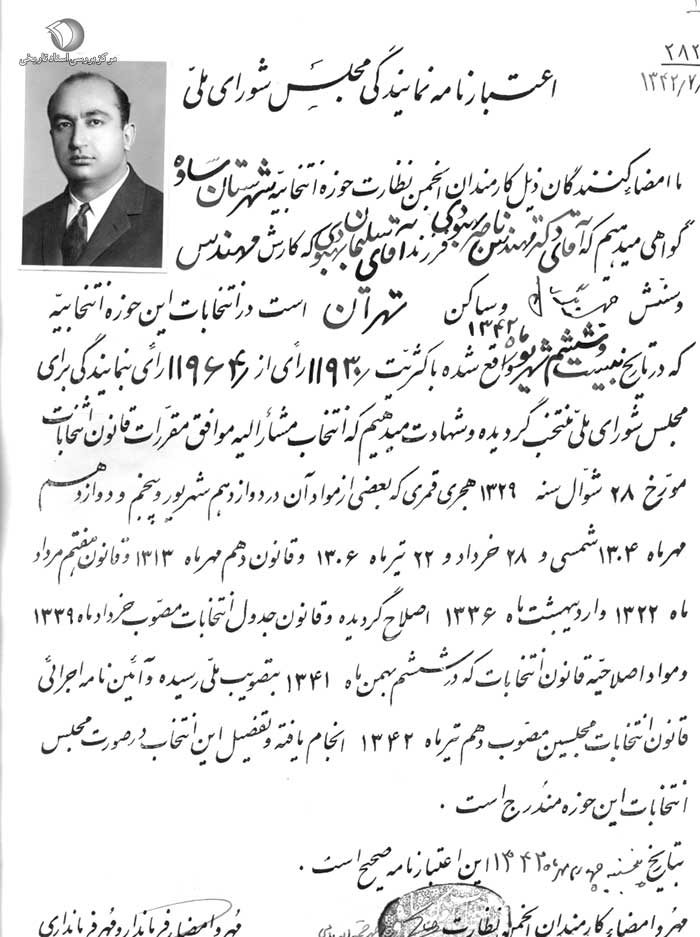 مرکز بررسی اسناد تاریخی
۲۸۲
۱۳۴۲/۷/
اعتبارنامه نمایندگی مجلس شورای ملی
ما امضاء کنندگان ذیل کارمندان انجمن نظارت حوزه انتخابیه شهرستان ساوه
گواهی میدهیم که آقای دکتر مهندس ناصر بهبودی فرزند آقای سلیمان بهبودی که کارش مهندس
وسنش و ساکن تهران است در انتخابات این حوزه انتخابیه
که در تاریخ بیست و ششم شهریور ماه ۱۳۴۲ واقع شده باکثریت ۱۱۹۳۰ رأی از ۱۱۹۶۴ رأی بنمایندگی برای
مجلس شورای ملی منتخب گردیده و شهادت میدهیم که انتخاب مشارالیه موافق مقررات قانون انتخابات
مورخ ۲۸ شوال سنه ۱۳۲۹ هجری قمری که بعضی از مواد آن در دوازدهم شهریور و پنجم و دوازدهم
مهرماه ۱۳۰۴ شمسی و ۲۸ خرداد و ۲۲ تیرماه ۱۳۰۶ و قانون دهم مهرماه ۱۳۱۳ و قانون هفتم مرداد
ماه ۱۳۲۲ و اردیبهشت ماه ۱۳۳۶ اصلاح گردیده و قانون جدول انتخابات مصوب خرداد ماه ۱۳۳۹
و مواد اصلاحیه قانون انتخابات که در ششم بهمن ماه ۱۳۴۱ بتصویب ملی رسیده و آئین نامه اجرائی
قانون انتخابات مجلسین مصوب دهم تیرماه ۱۳۴۲ انجام یافته و تفصیل این انتخاب در صورت مجلس
انتخابات این حوزه مندرج است .
بتاریخ مهرماه ۱۳۴۲ این اعتبارنامه صحیح است .
مهر و امضاء کارمندان انجمن نظارت
مهر و امضاء فرماندار و مهر فرمانداری